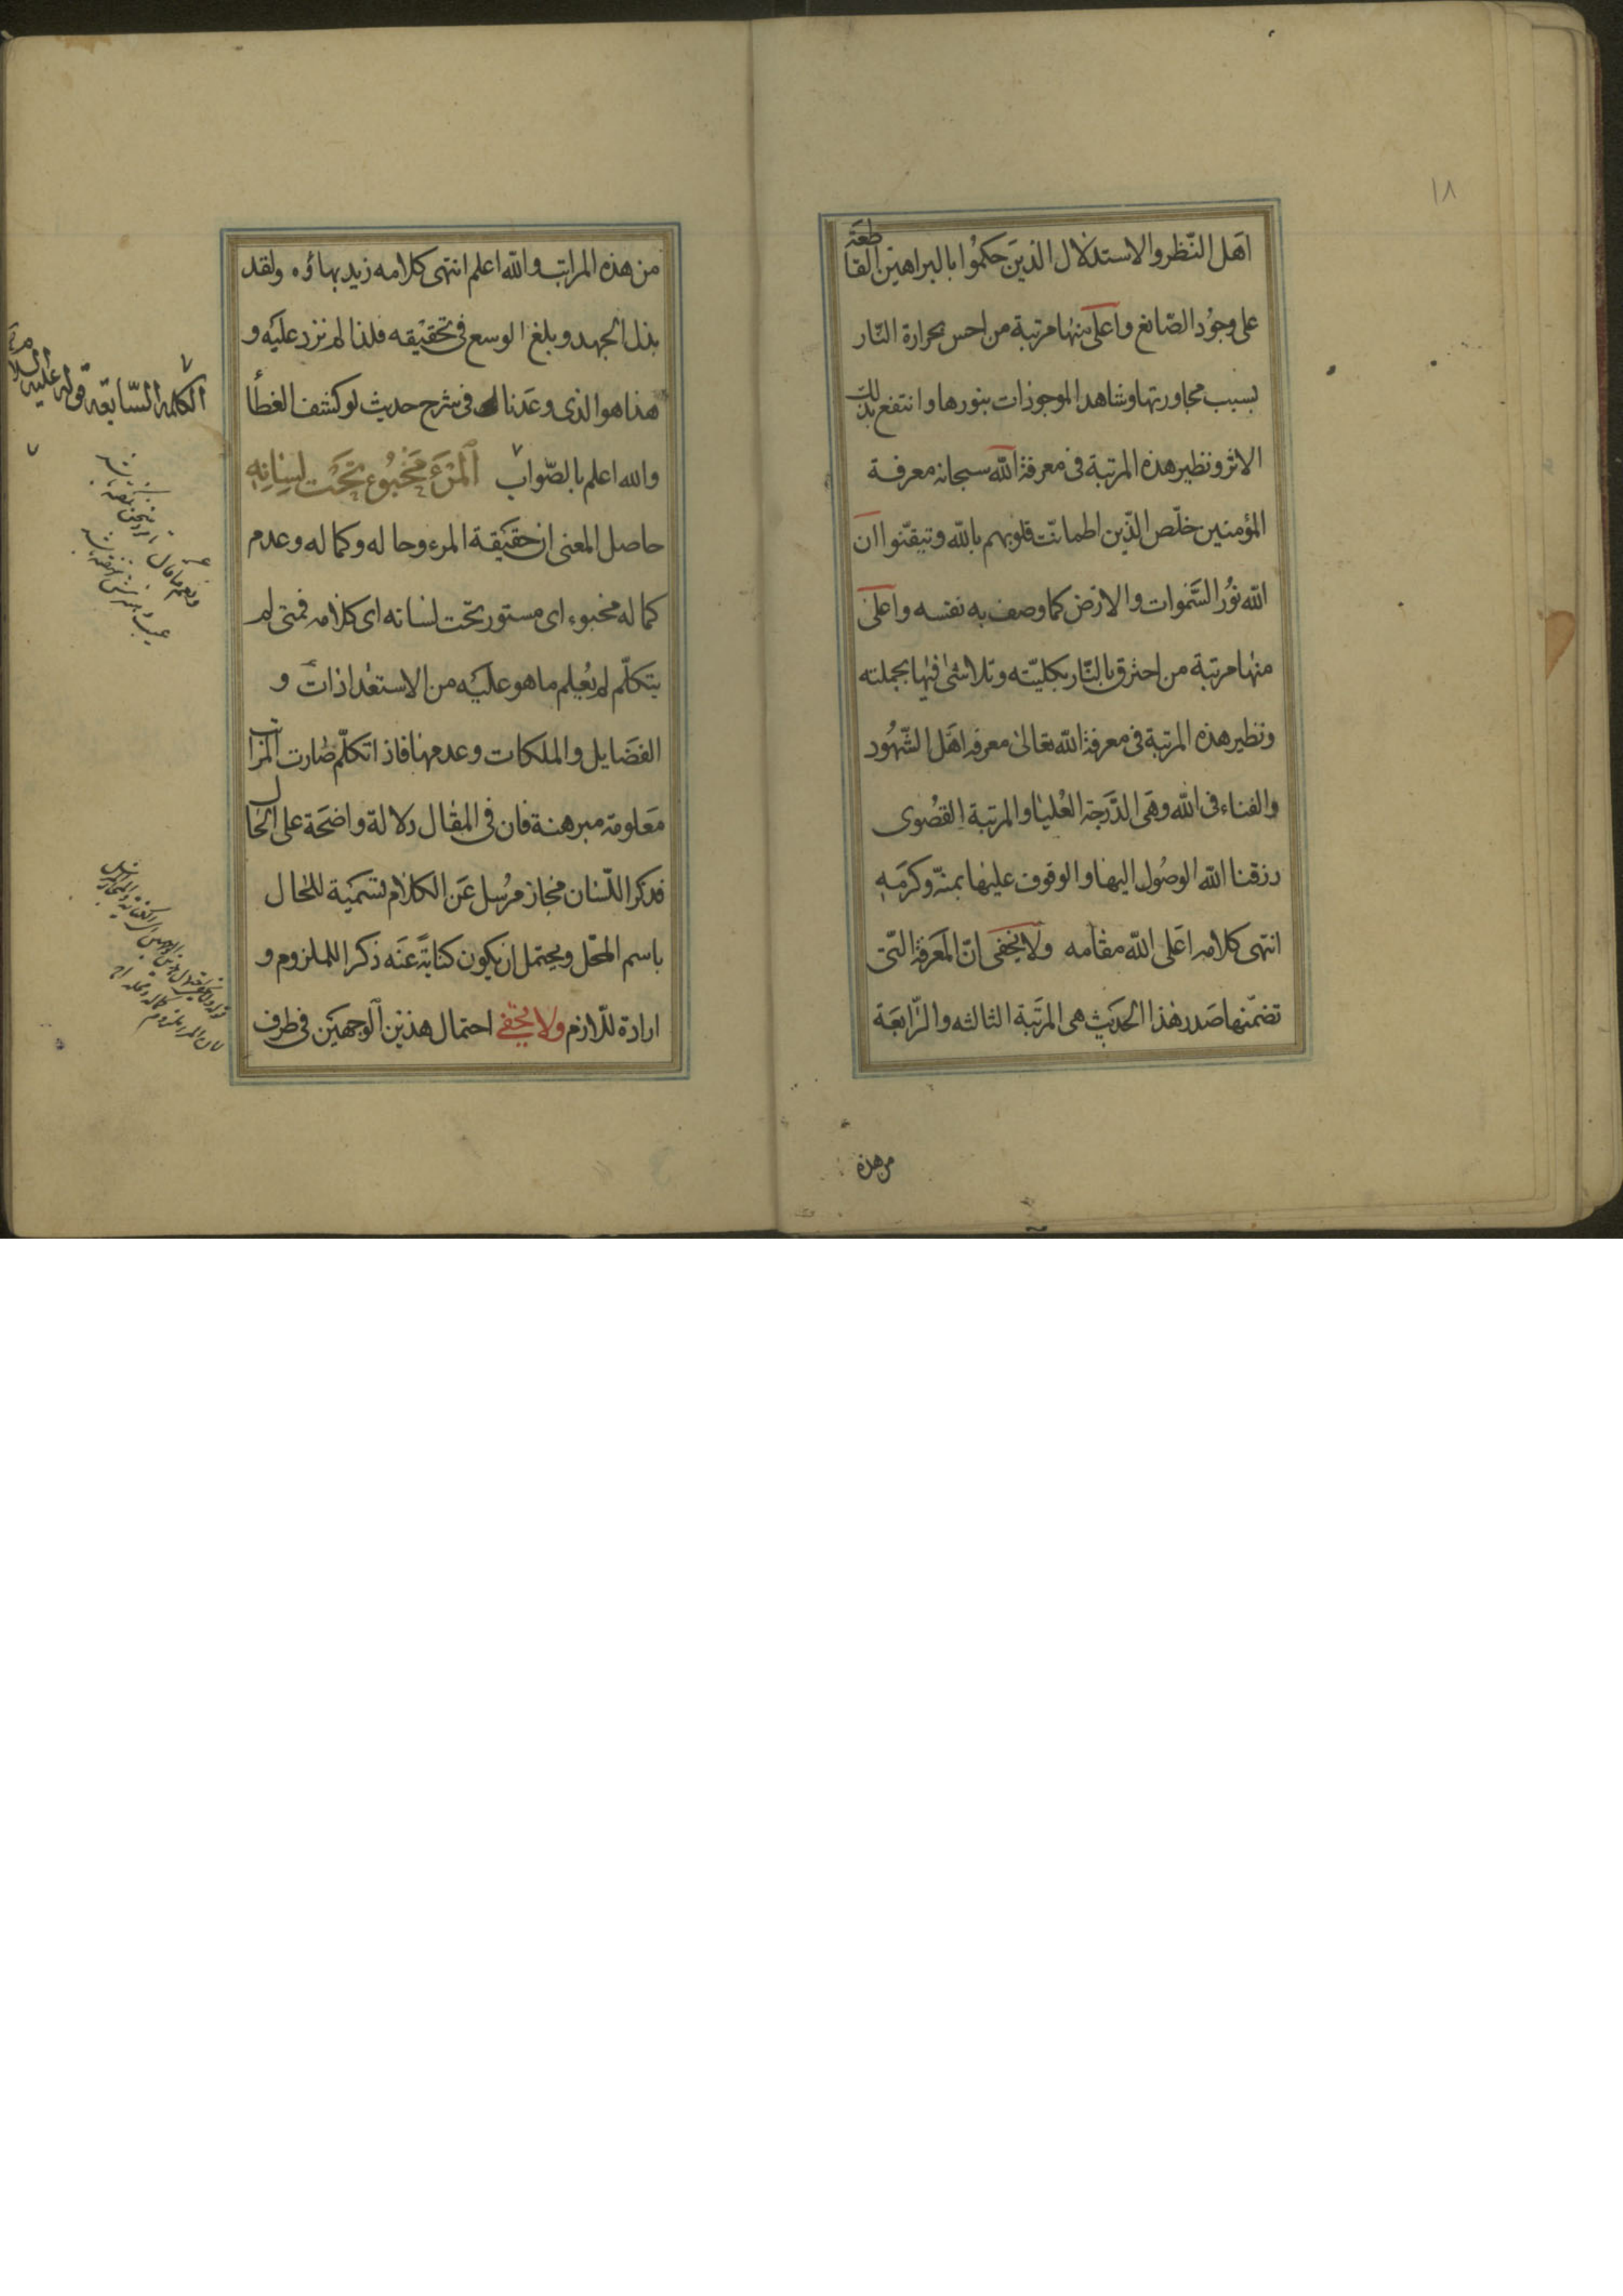 ١٨
اهل النّظر والاستدلال الذين حكموا بالبراهين القاطعة
على وجود الصّانع واعلى منها مرتبة من احس بحرارة النّار
بسبب مجاورتها وشاهد الموجودات بنورها وانتفع بذلك
الاثر ونظير هذه المرتبة فى معرفة الله سبحانه معرفة
المؤمنين خلّص الذّين اطمانّت قلوبهم بالله وتيقّنوا ان
الله نور السّموات والارض كما وصف به نفسه واعلى
منها مرتبة من احترق بالنّار بكليّته وتلاشى فيها بجملته
ونظير هذه المرتبة فى معرفة الله تعالى معرفة اهل الشّهود
والفناء فى الله وهى الدّرجة العليا والمرتبة القصوى
رزقنا الله الوصول اليها والوقوف عليها بمنّه وكرمه
انتهى كلامه اعلى الله مقامه ولا يخفى انّ المعرفة الّتى
تضمّنها صدر هذا الحديث هى المرتبة الثالثه والرّابعة
من هذه
من هذه المراتب والله اعلم انتهى كلامه زيد بهاؤه ولقد
بذل الجهد وبلغ الوسع فى تحقيقه فلذا لم نزد عليه و
هذا هو الذى وعدناك فى شرح حديث لو كشف الغطأ
والله اعلم بالصّواب المرء مخبوء تحت لسانه
حاصل المعنى ان حقيقة المرء وحاله وكماله وعدم
كماله مخبوء اى مستور تحت لسانه اى كلامه فمتى لم
يتكلّم لم يعلم ما هو عليه من الاستعدادات و
الفضايل والملكات وعدمها فاذا تكلّم صارت المراتب
معلومة مبرهنة فان فى المقال دلالة واضحة على الحال
فذكر اللّسان مجاز مرسل عن الكلام تسمية للحال
باسم المحّل ويحتمل ان يكون كناية عنه ذكرا للملزوم و
ارادة للّازم ولا يخفى احتمال هذين الوجهين فى طرف
الكلمة السّابقة قوله عليه السلام
ونعم ما قال